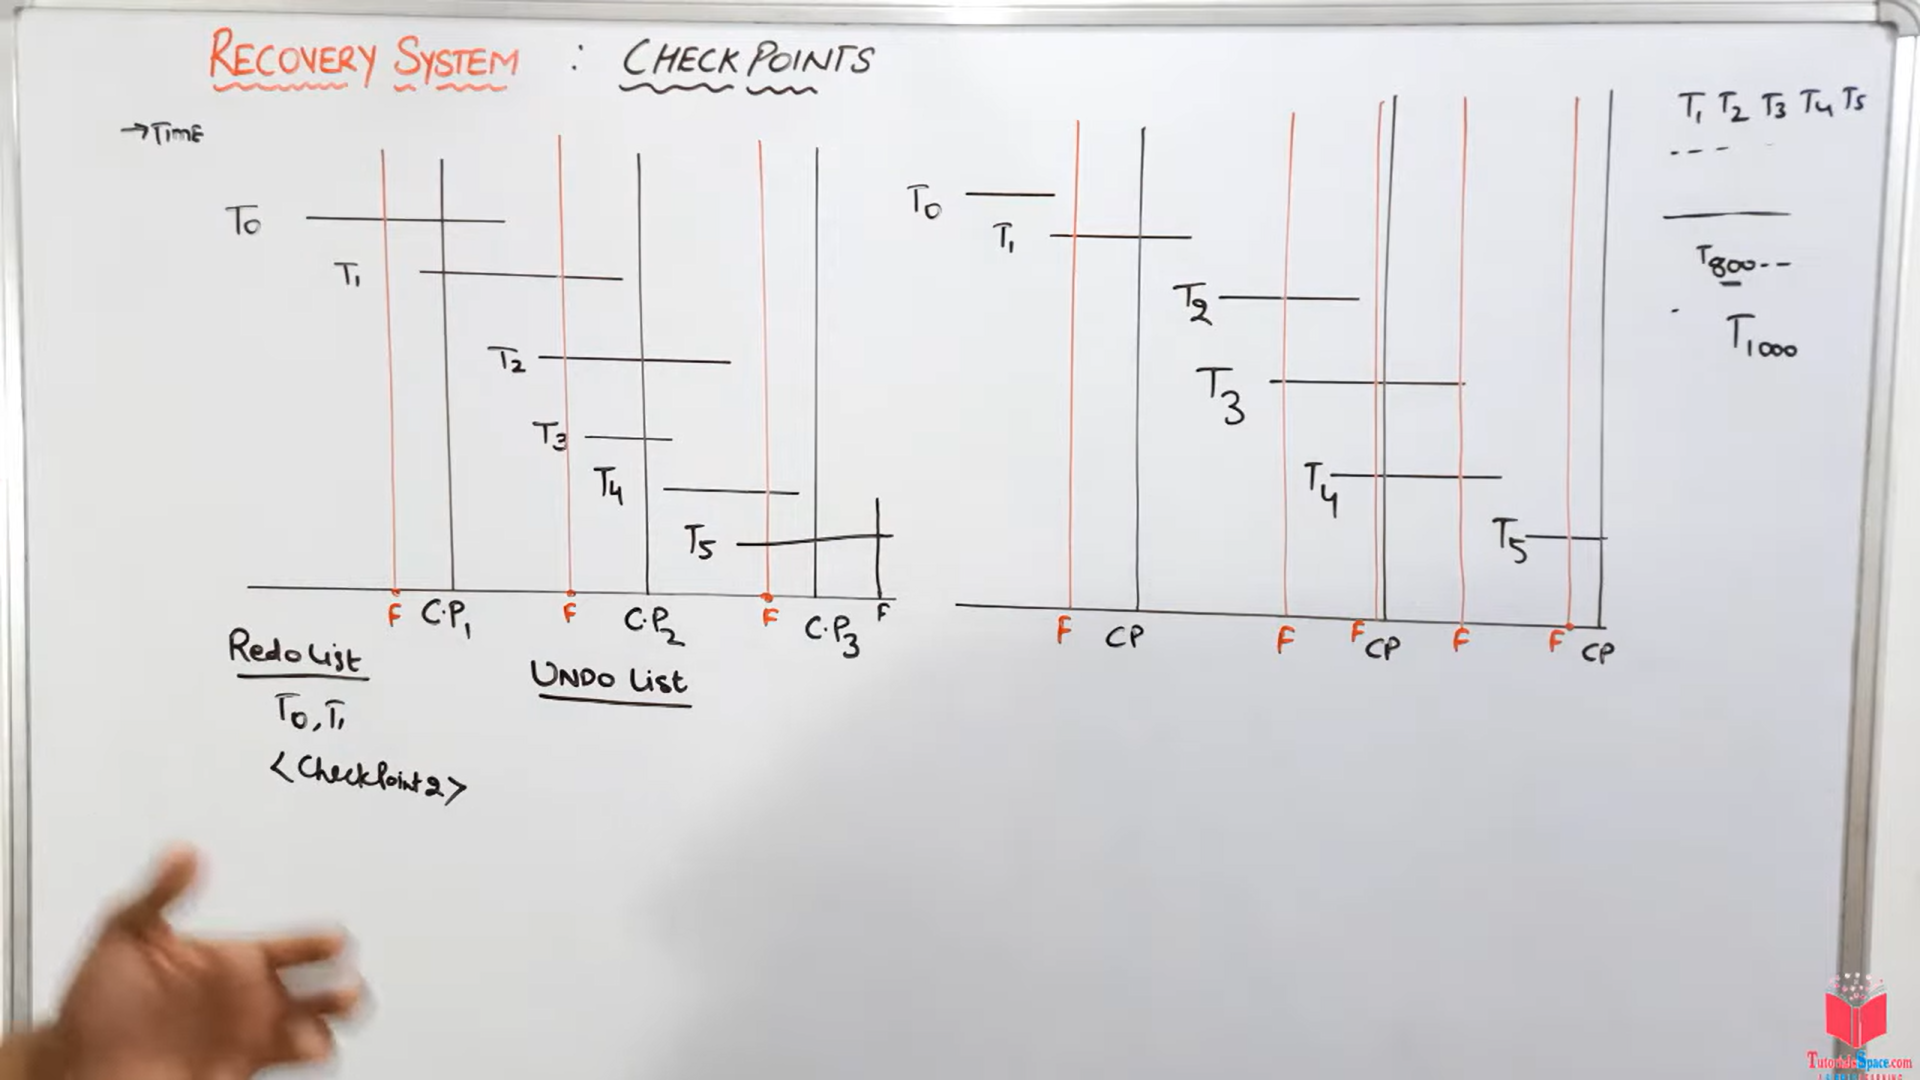 RECOVERY SYSTEM : CHECK POINTS
→Time
T0
T1
T2
T3
T4
T5
F C.P1 F C.P2 F C.P3 F
Redo List
T0, T1
<CheckPoint2>
UNDO List
T0
T1
T2
T3
T4
T5
F CP F F CP F F CP
T1 T2 T3 T4 T5
T800--
T1000
TutorialsSpace.com